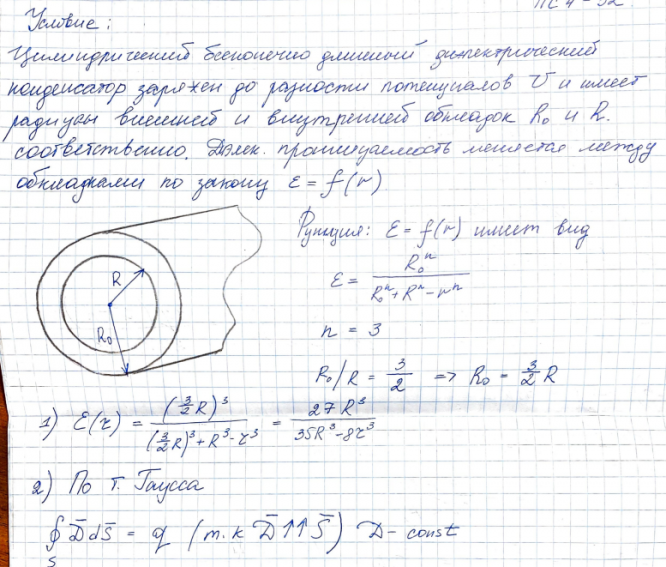 Условие:
Цилиндрический бесконечно длинный диэлектрический
конденсатор заряжен до разности потенциалов U и имеет
радиусы внешней и внутренней обкладок R₀ и R.
соответственно. Диэлек. проницаемость меняется между
обкладками по закону ε = f(r)
Функция: ε = f(r) имеет вид
ε = R₀ⁿ / (R₀ⁿ + Rⁿ - rⁿ)
n = 3
R₀/R = 3/2 => R₀ = 3/2 R
R
R₀
1) ε(r) = (3/2 R)³ / ((3/2 R)³ + R³ - r³) = 27R³ / (35R³ - 8r³)
2) По т. Гаусса
∮ D̄ dS̄ = q (т.к D̄ ↑↑ S̄) D - const
S